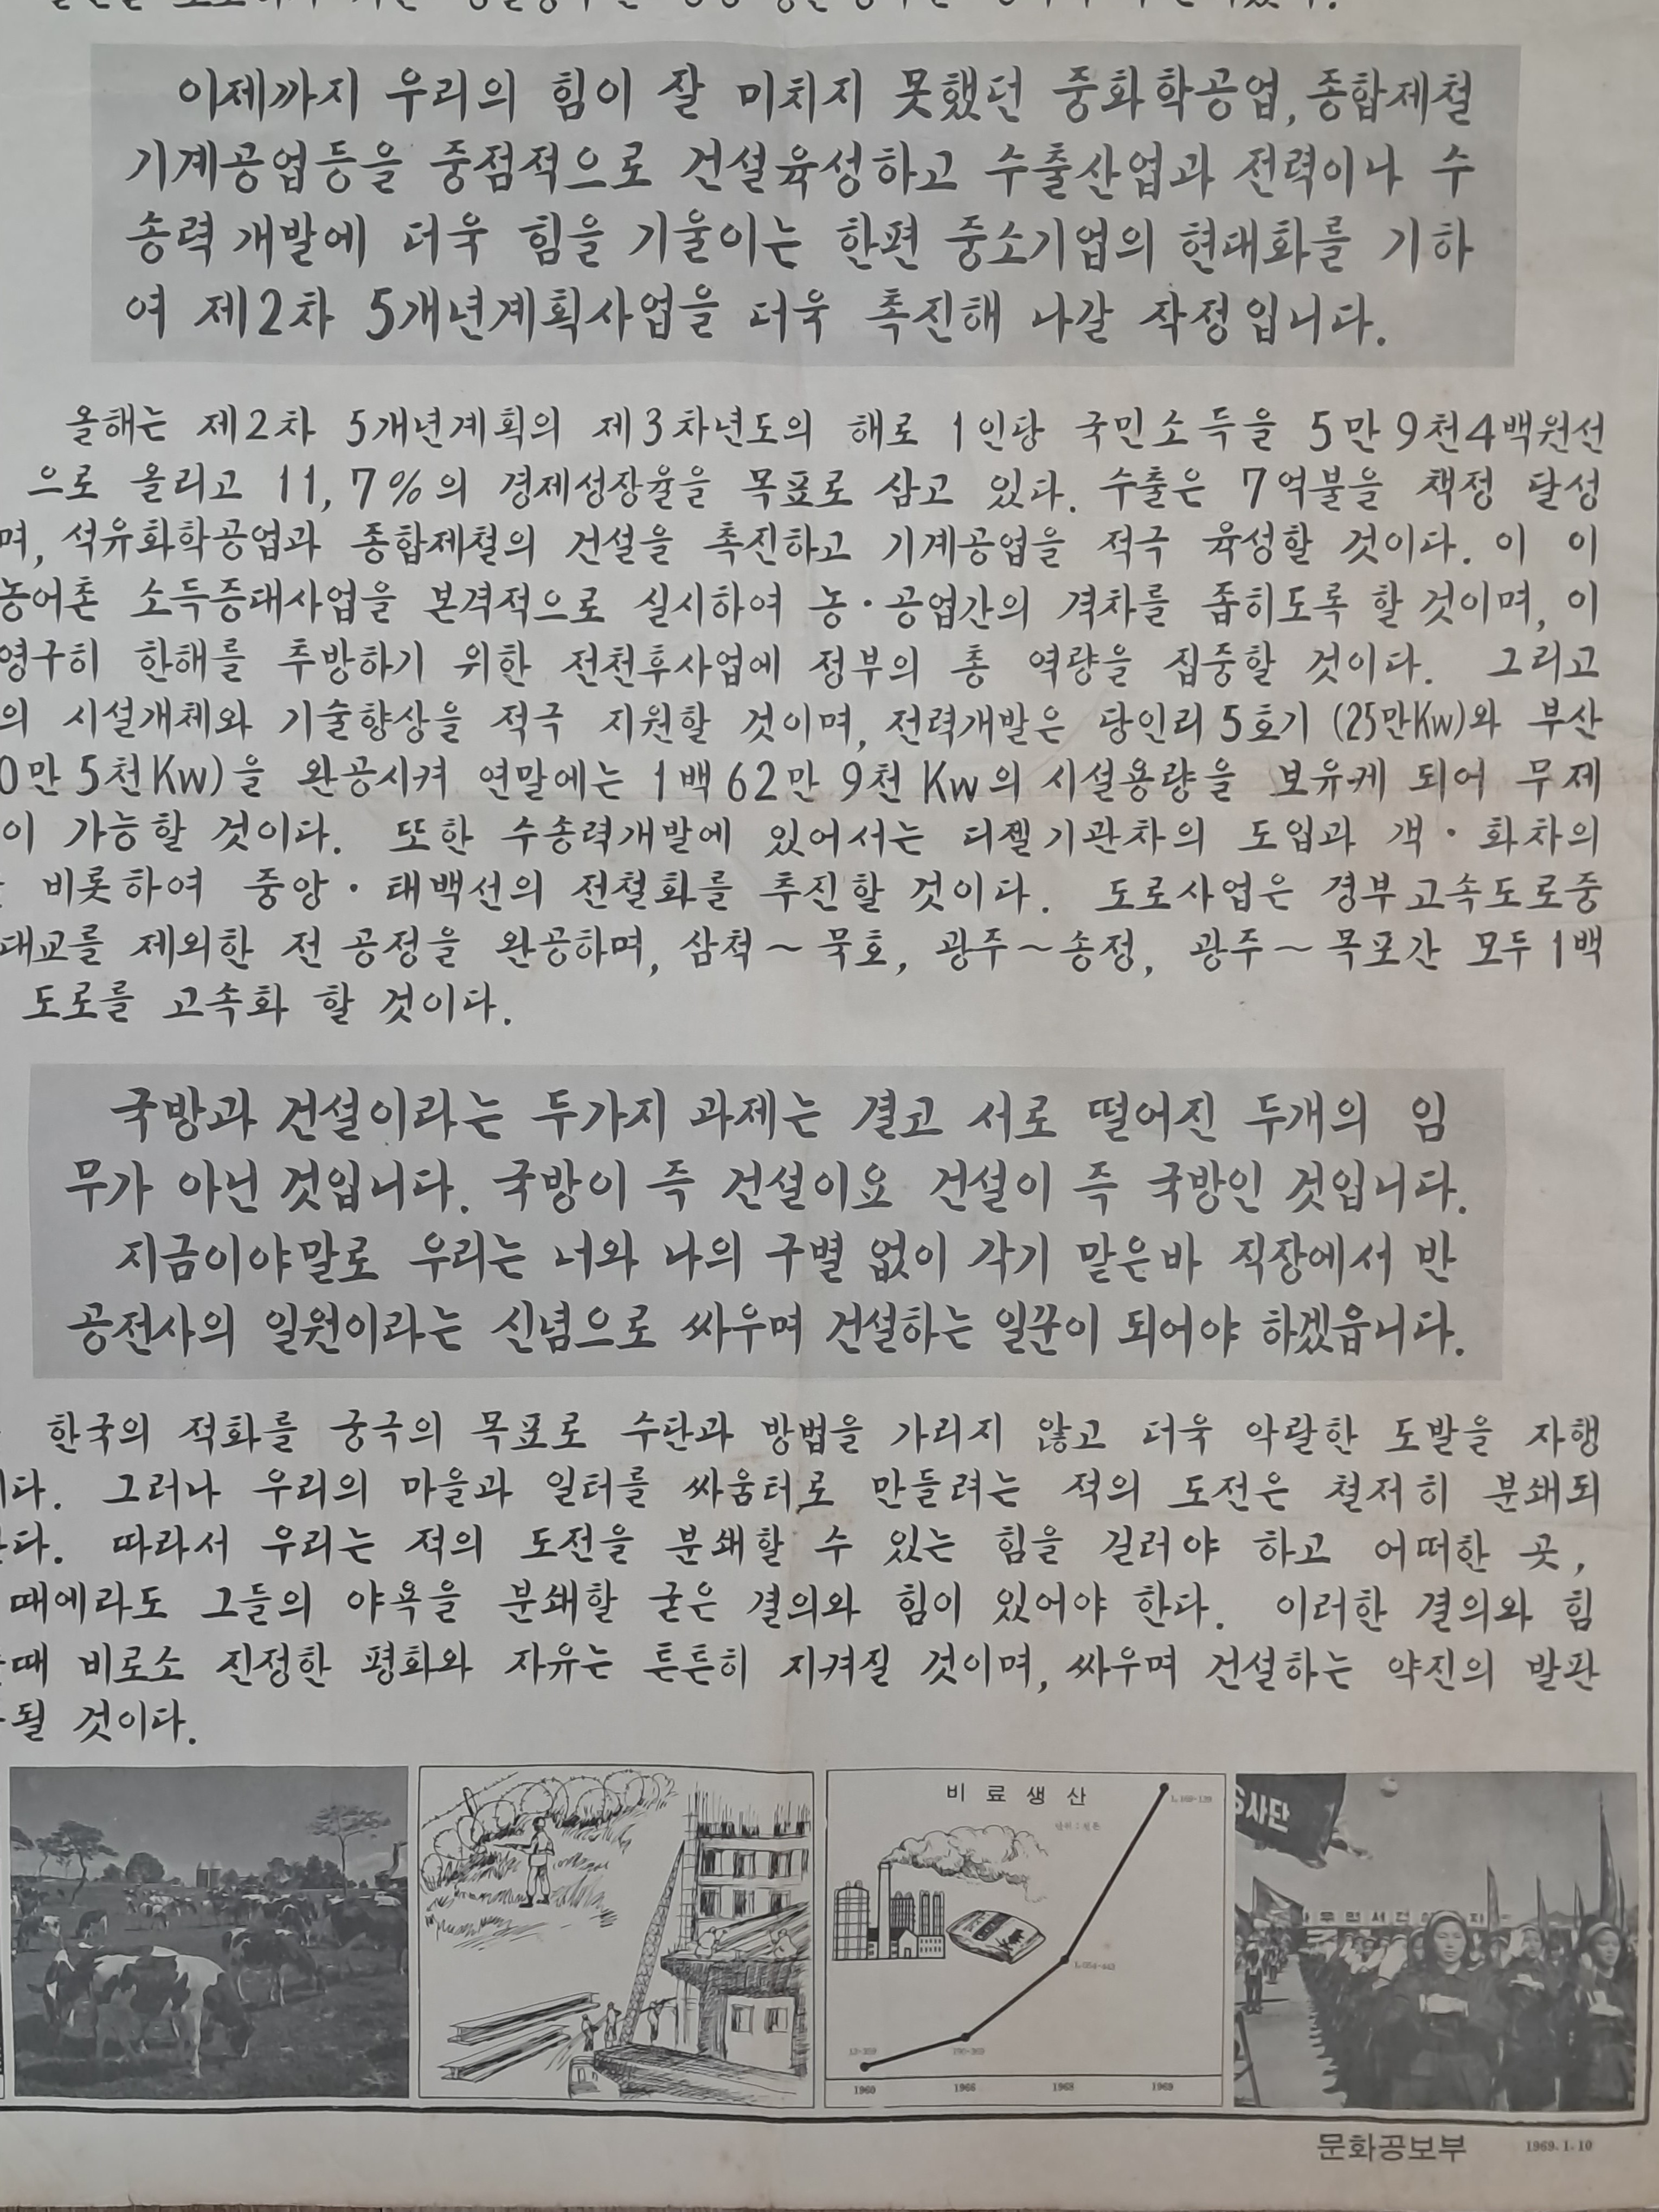 이제까지 우리의 힘이 잘 미치지 못했던 중화학공업, 종합제철
기계공업등을 중점적으로 건설육성하고 수출산업과 전력이나 수
송력 개발에 더욱 힘을 기울이는 한편 중소기업의 현대화를 기하
여 제2차 5개년계획사업을 더욱 촉진해 나갈 작정입니다.
올해는 제2차 5개년계획의 제3차년도의 해로 1인당 국민소득을 5만9천4백원선
으로 올리고 11,7%의 경제성장율을 목표로 삼고 있다. 수출은 7억불을 책정 달성
며, 석유화학공업과 종합제철의 건설을 촉진하고 기계공업을 적극 육성할 것이다. 이 이
농어촌 소득증대사업을 본격적으로 실시하여 농·공업간의 격차를 좁히도록 할 것이며, 이
영구히 한해를 추방하기 위한 전천후사업에 정부의 총 역량을 집중할 것이다. 그리고
의 시설개체와 기술향상을 적극 지원할 것이며, 전력개발은 당인리 5호기 (25만Kw)와 부산
0만 5천Kw)을 완공시켜 연말에는 1백62만 9천Kw의 시설용량을 보유케 되어 무제
이 가능할 것이다. 또한 수송력개발에 있어서는 디젤기관차의 도입과 객·화차의
비롯하여 중앙·태백선의 전철화를 추진할 것이다. 도로사업은 경부고속도로중
대교를 제외한 전 공정을 완공하며, 삼척~묵호, 광주~송정, 광주~목포간 모두 1백
도로를 고속화 할 것이다.
국방과 건설이라는 두가지 과제는 결고 서로 떨어진 두개의 임
무가 아닌 것입니다. 국방이 즉 건설이요 건설이 즉 국방인 것입니다.
지금이야말로 우리는 너와 나의 구별 없이 각기 맡은바 직장에서 반
공전사의 일원이라는 신념으로 싸우며 건설하는 일꾼이 되어야 하겠읍니다.
한국의 적화를 궁극의 목표로 수단과 방법을 가리지 않고 더욱 악랄한 도발을 자행
다. 그러나 우리의 마을과 일터를 싸움터로 만들려는 적의 도전은 철저히 분쇄되
다. 따라서 우리는 적의 도전을 분쇄할 수 있는 힘을 길러야 하고 어떠한 곳,
때에라도 그들의 야욕을 분쇄할 굳은 결의와 힘이 있어야 한다. 이러한 결의와 힘
때 비로소 진정한 평화와 자유는 튼튼히 지켜질 것이며, 싸우며 건설하는 약진의 발판
될 것이다.
비료생산
사단
1960 1966 1968 1969
문화공보부 1969.1.10